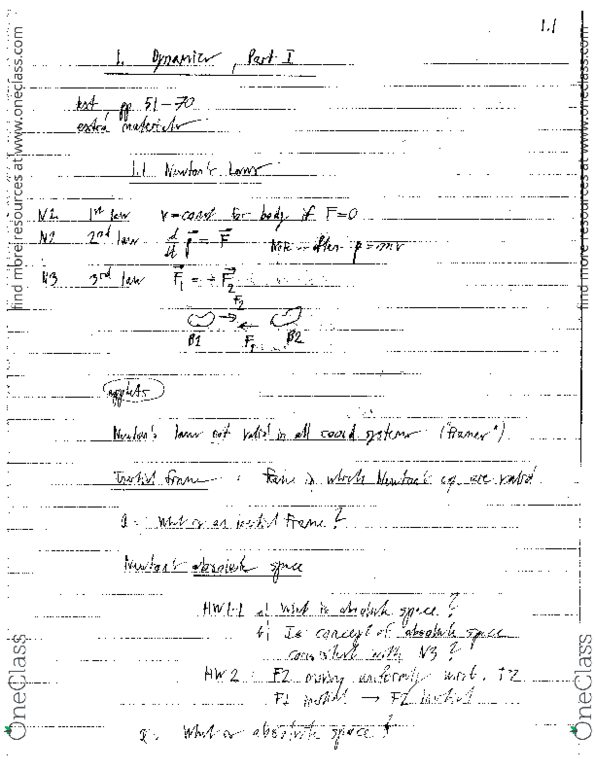 1.1
1. Dynamics, Part I
text pp 51-70
extra materials
1.1 Newton's Laws
1st law v=const for body if F=0
N2 2nd law d/dt p⃗ = F⃗ Note - often p=mv
N3 3rd law F⃗₁ = - F⃗₂
F₂
B1 F₁ B2
applets
Newton's laws not valid in all coord systems ("frames")
Inertial frame : frame in which Newton's eq. are valid
Q: What is an inertial frame?
Newton's absolute space
HW1-1 a) What is absolute space?
b) Is concept of absolute space
consistent with N3?
HW2 F2 moving uniformly w.r.t.
F1 inertial → F2 inertial
Q: What is absolute space?
find more resources at www.oneclass.com
find more resources at www.oneclass.com
OneClass
OneClass